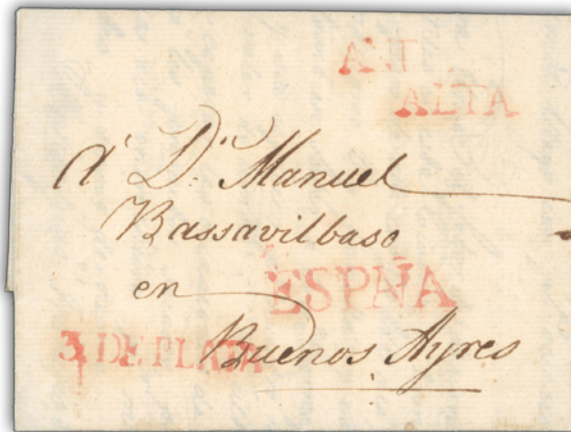 ALTA
A D.n Manuel
Bassavilbaso
en
ESPAÑA
3 DE PLATA
Buenos Ayres